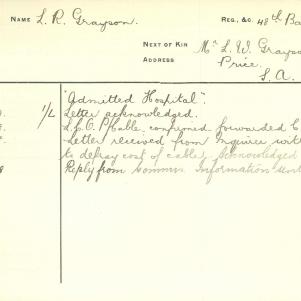 NAME L. R. Grayson. REG., &C. 48th Ba
NEXT OF KIN Mr L. W. Grayso
ADDRESS Price.
S. A.
"Admitted Hospital".
1/L Letter acknowledged.
Cable, confirmed forwarded
Letter received from Inquirer with
to defray cost of cable, Acknowledged
Reply from Commrs. Information